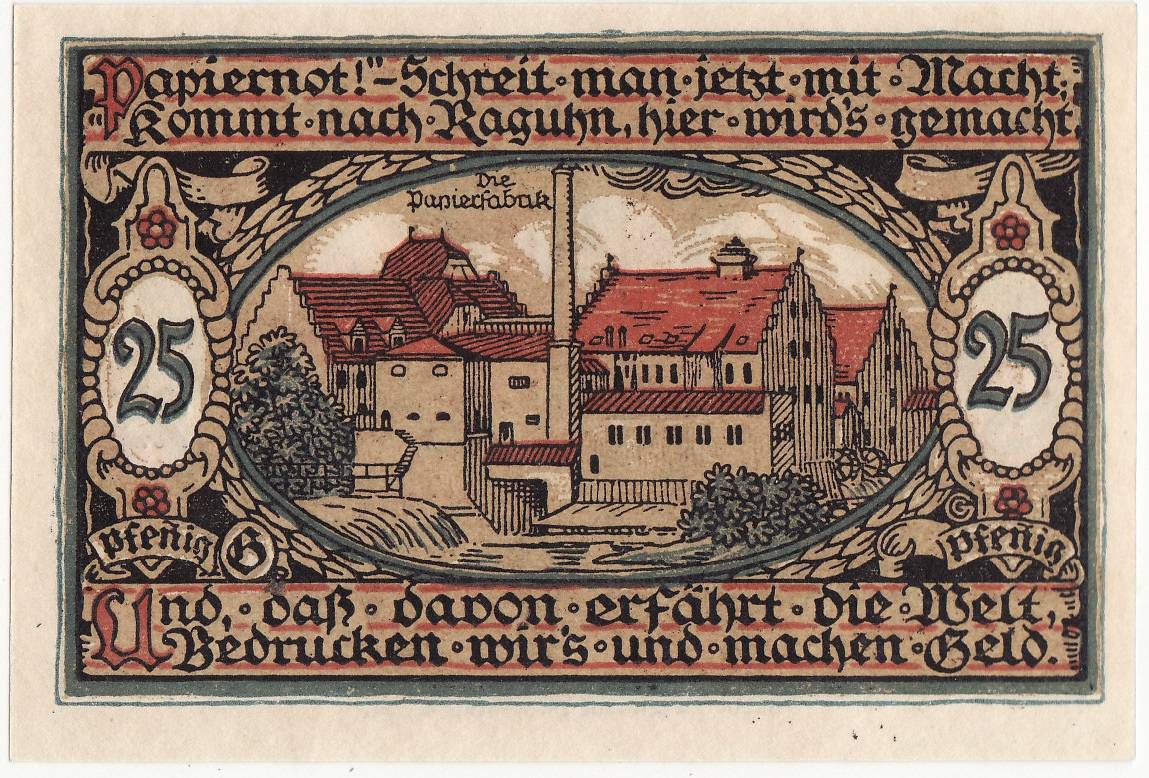 „Papiernot!"-Schreit·man·jetzt·mit·Macht;
Kommt·nach·Raguhn, hier·wird's·gemacht,
Die
Papierfabrik
25
25
G
pfen̄ig G
pfen̄ig
Und,·daß·davon·erfährt·die·Welt,
Bedrucken·wir's·und·machen·Geld.